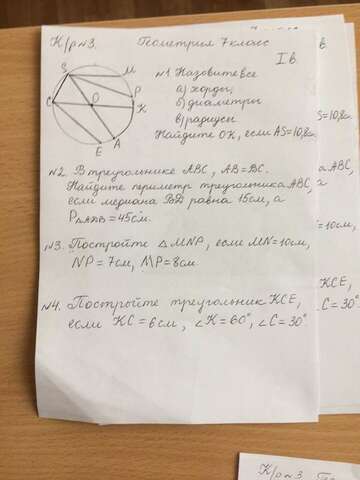 К/р №3. Геометрия 7 класс
I в.
S
M
P
C
O
K
E
A
№1 Назовите все
а) хорды,
б) диаметры
в) радиусы
Найдите OK, если AS=10,8см.
№2. В треугольнике ABC, AB=BC.
Найдите периметр треугольника ABC,
если медиана BD равна 15см, а
P△ABD=45см.
№3. Постройте △MNP, если MN=10см,
NP=7см, MP=8см
№4. Постройте треугольник KCE,
если KC=6см, ∠K=60°, ∠C=30°
=10,8см
ABC,
KCE,
∠C=30°
К/р №3